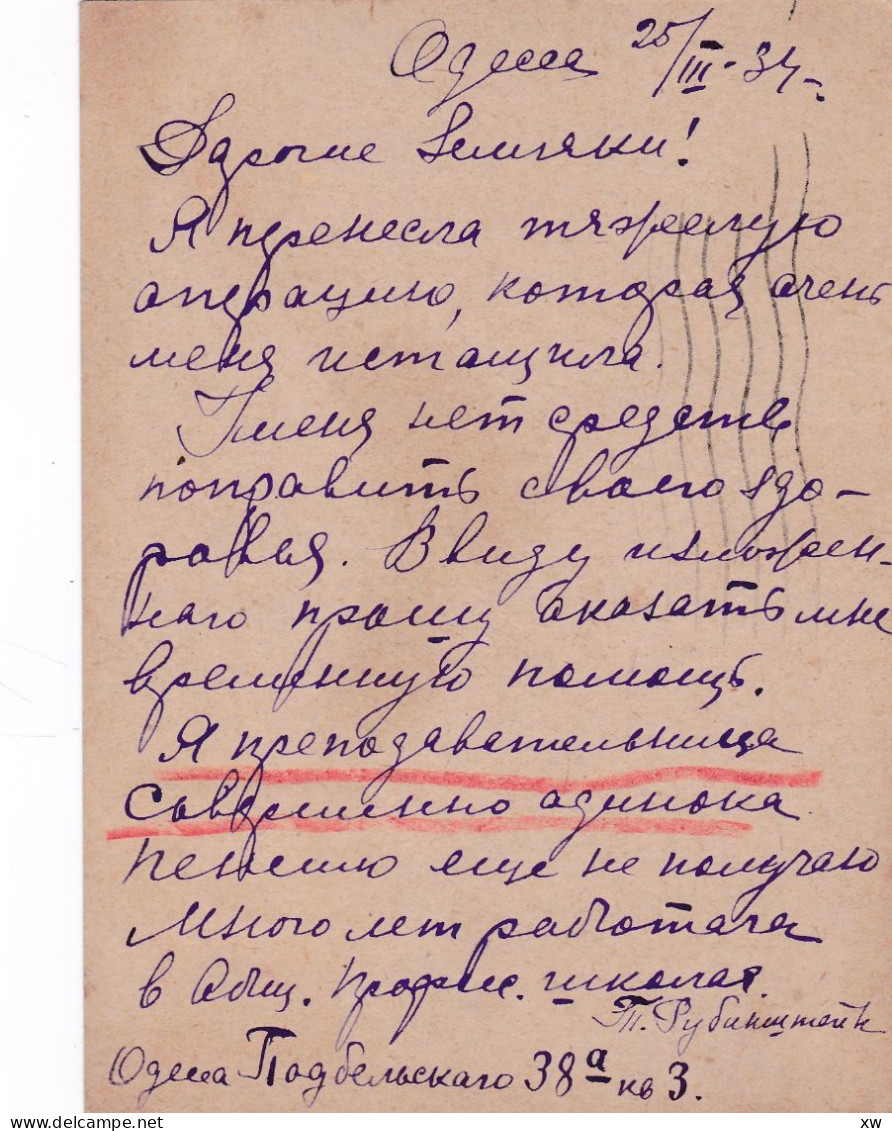 Одесса 25/III-34
Дорогие Земляки!
Я перенесла тяжелую
операцию, которая очень
меня истащила.
У меня нет средств
поправить своего здо-
ровья. Ввиду изложен-
наго прошу оказать мне
временную помощь.
Я преподавательница
совершенно одинока
пенсию еще не получаю
много лет работала
в Общ. Профис. школах.
Т. Рубинштейн
Одесса Подбельскаго 38 а кв 3.
xw